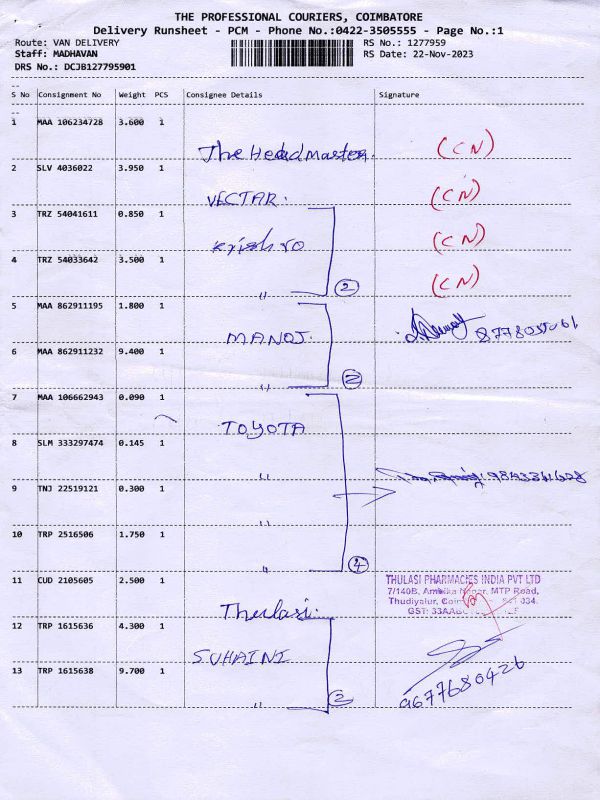 THE PROFESSIONAL COURIERS, COIMBATORE
Delivery Runsheet - PCM - Phone No.:0422-3505555 - Page No.:1
Route: VAN DELIVERY RS No.: 1277959
Staff: MADHAVAN RS Date: 22-Nov-2023
DRS No.: DCJB127795901
S No Consignment No Weight PCS Consignee Details Signature
1 MAA 106234728 3.600 1 The Headmaster. (CN)
2 SLV 4036022 3.950 1 VECTAR. (CN)
3 TRZ 54041611 0.850 1 (CN)
4 TRZ 54033642 3.500 1 " (2) (CN)
5 MAA 862911195 1.800 1 MANOJ.
6 MAA 862911232 9.400 1 " (2)
7 MAA 106662943 0.090 1 TOYOTA
8 SLM 333297474 0.145 1 "
9 TNJ 22519121 0.300 1 "
10 TRP 2516506 1.750 1 " (4)
11 CUD 2105605 2.500 1 Thulasi.
THULASI PHARMACIES INDIA PVT LTD
7/140B, Ambika Nagar, MTP Road,
Thudiyalur, 034.
GST:
12 TRP 1615636 4.300 1 SUHAINI
13 TRP 1615638 9.700 1 " 9677680426